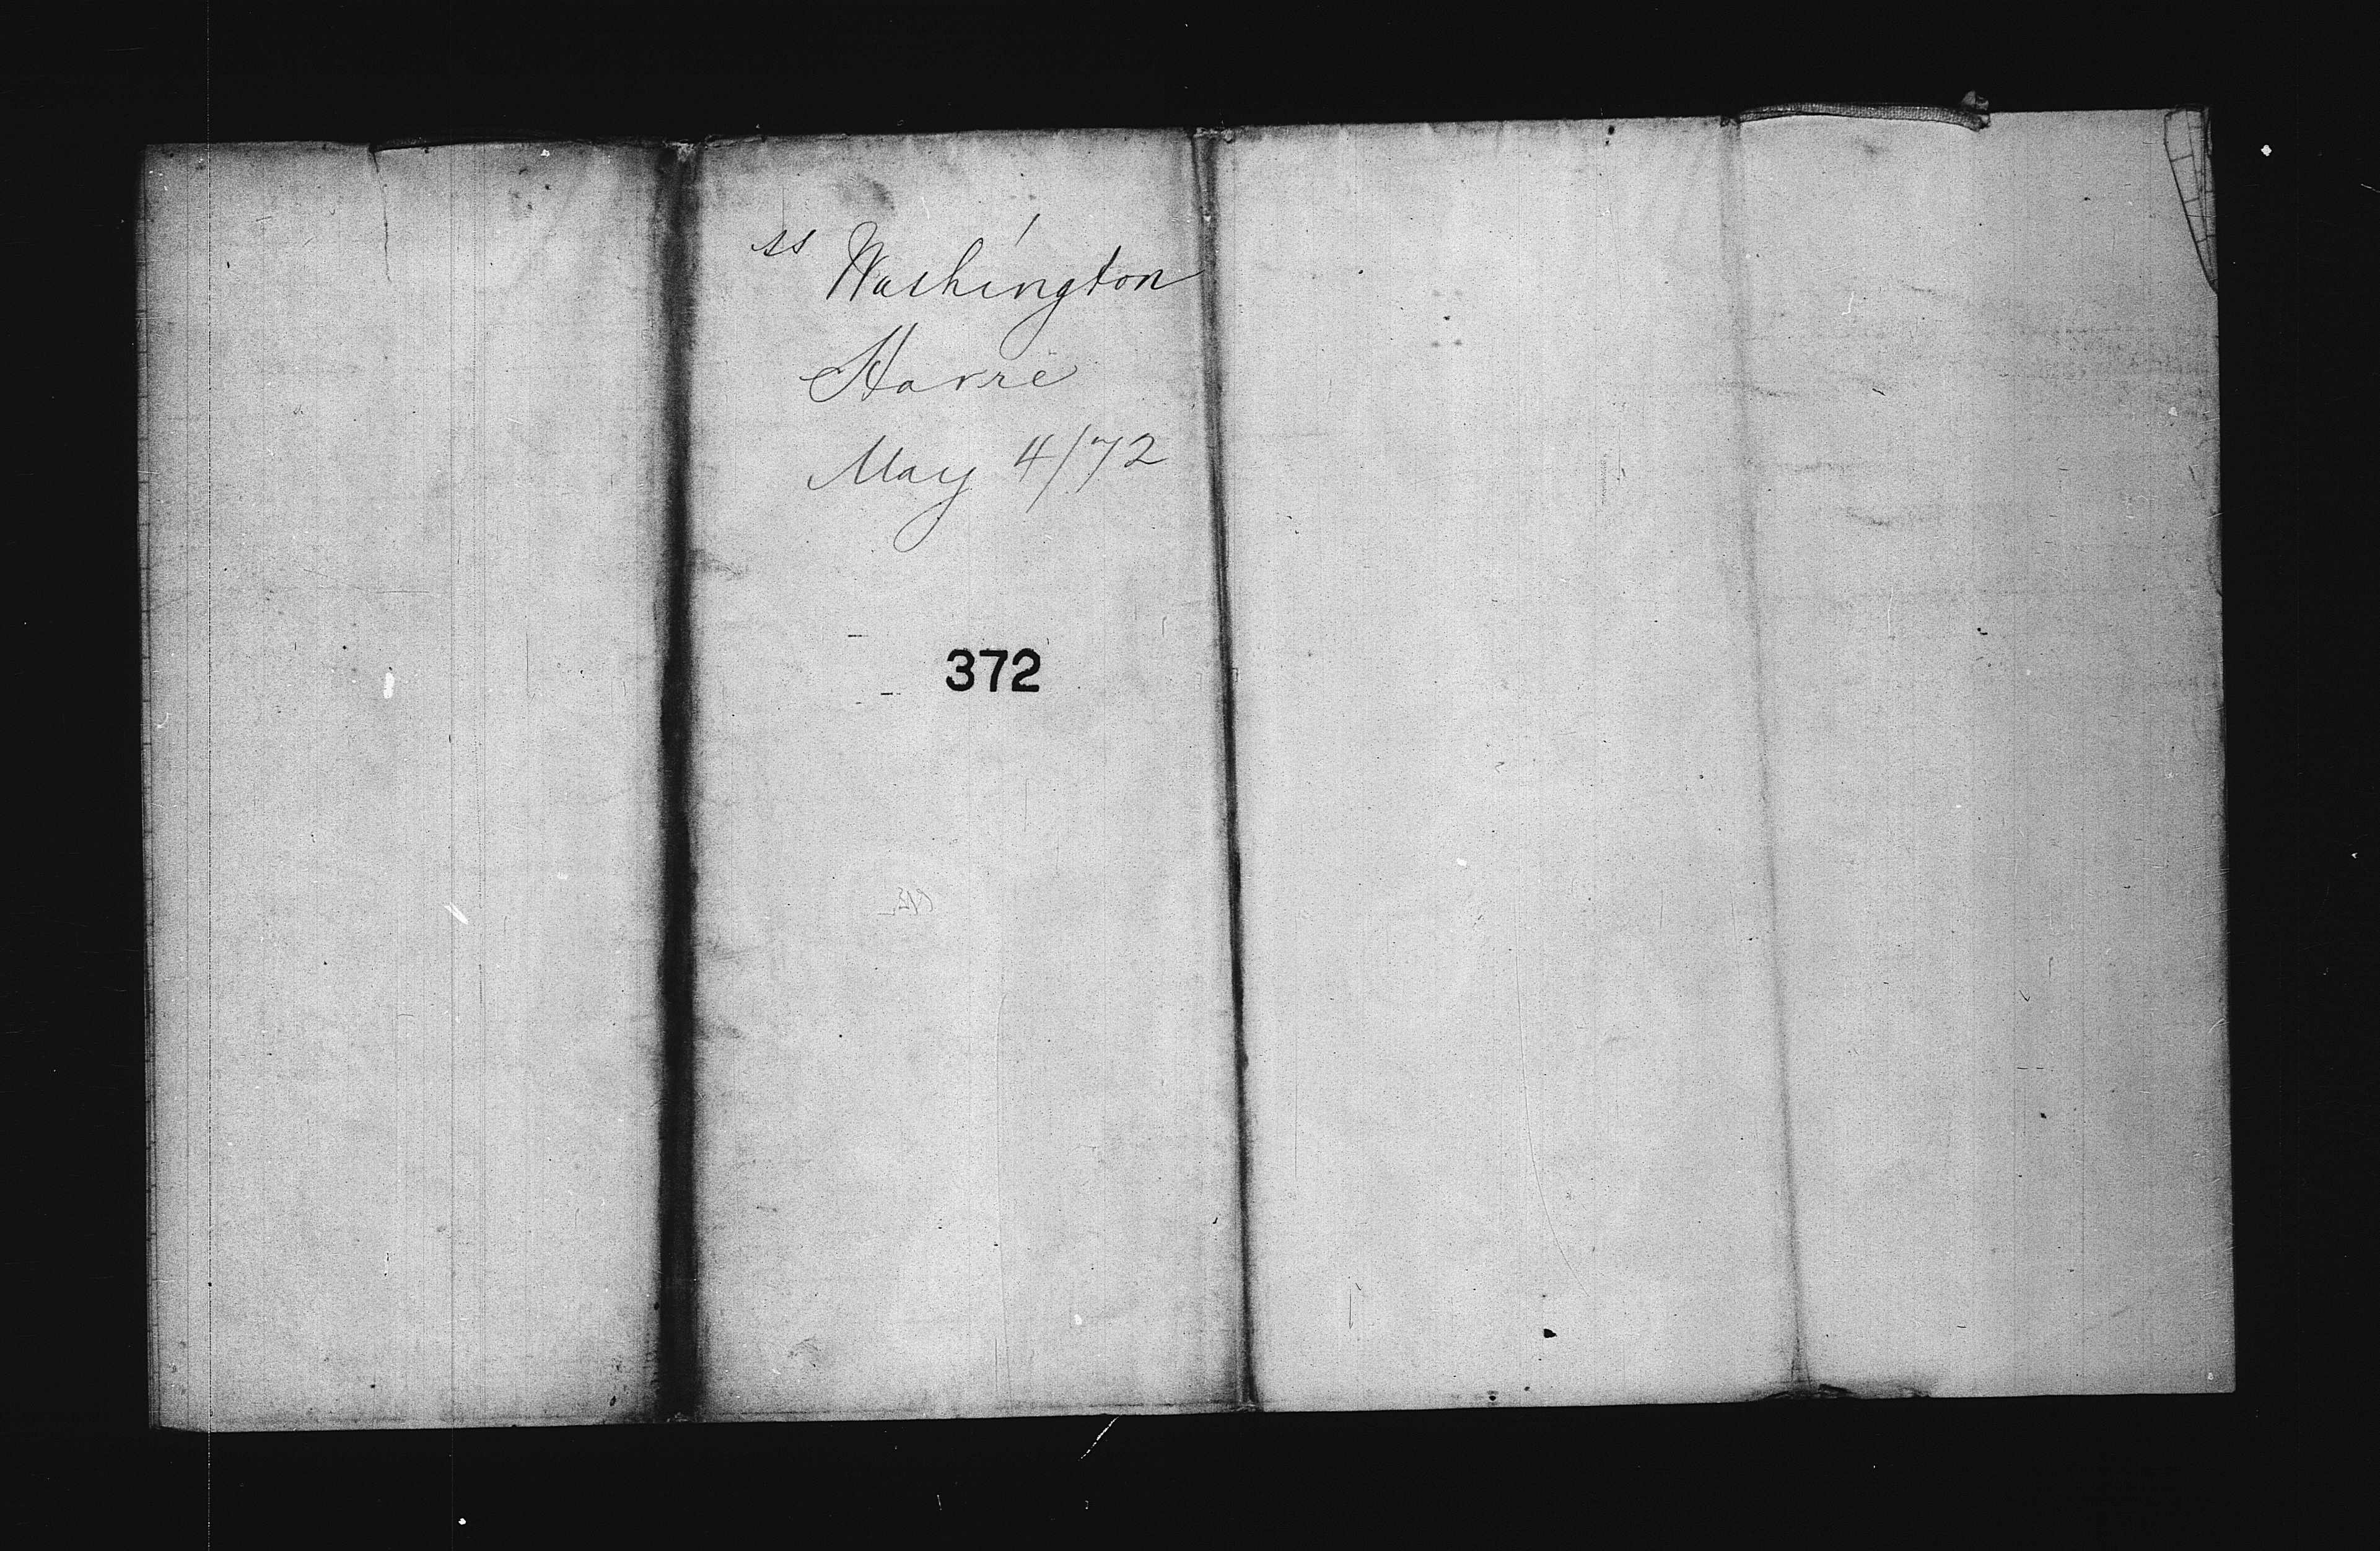 ss Washington
Havre
May 4/72
372